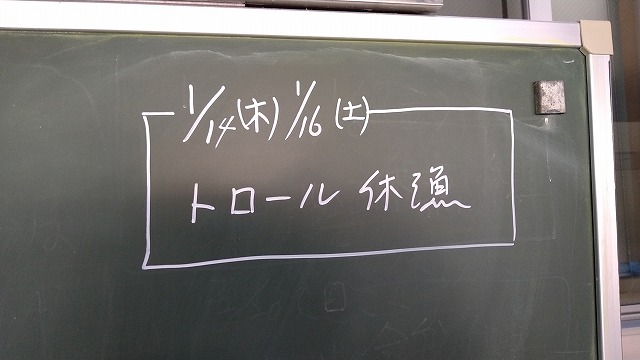 1/14(木) 1/16(土)
トロール 休漁